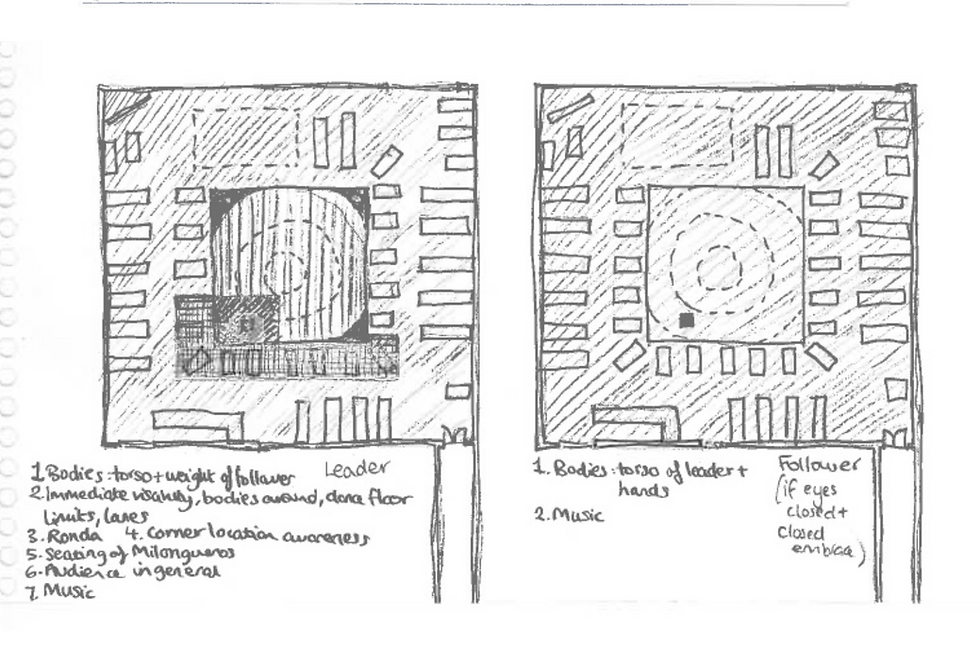 Leader
1. Bodies: torso + weight of follower
2. Immediate visinity, bodies around, dance floor
limits, lanes
3. Ronda 4. Corner location awareness
5. Seating of Milongueros
6. Audience in general
7. Music
Follower
(if eyes
closed +
closed
embrace)
1. Bodies: torso of leader +
hands
2. Music